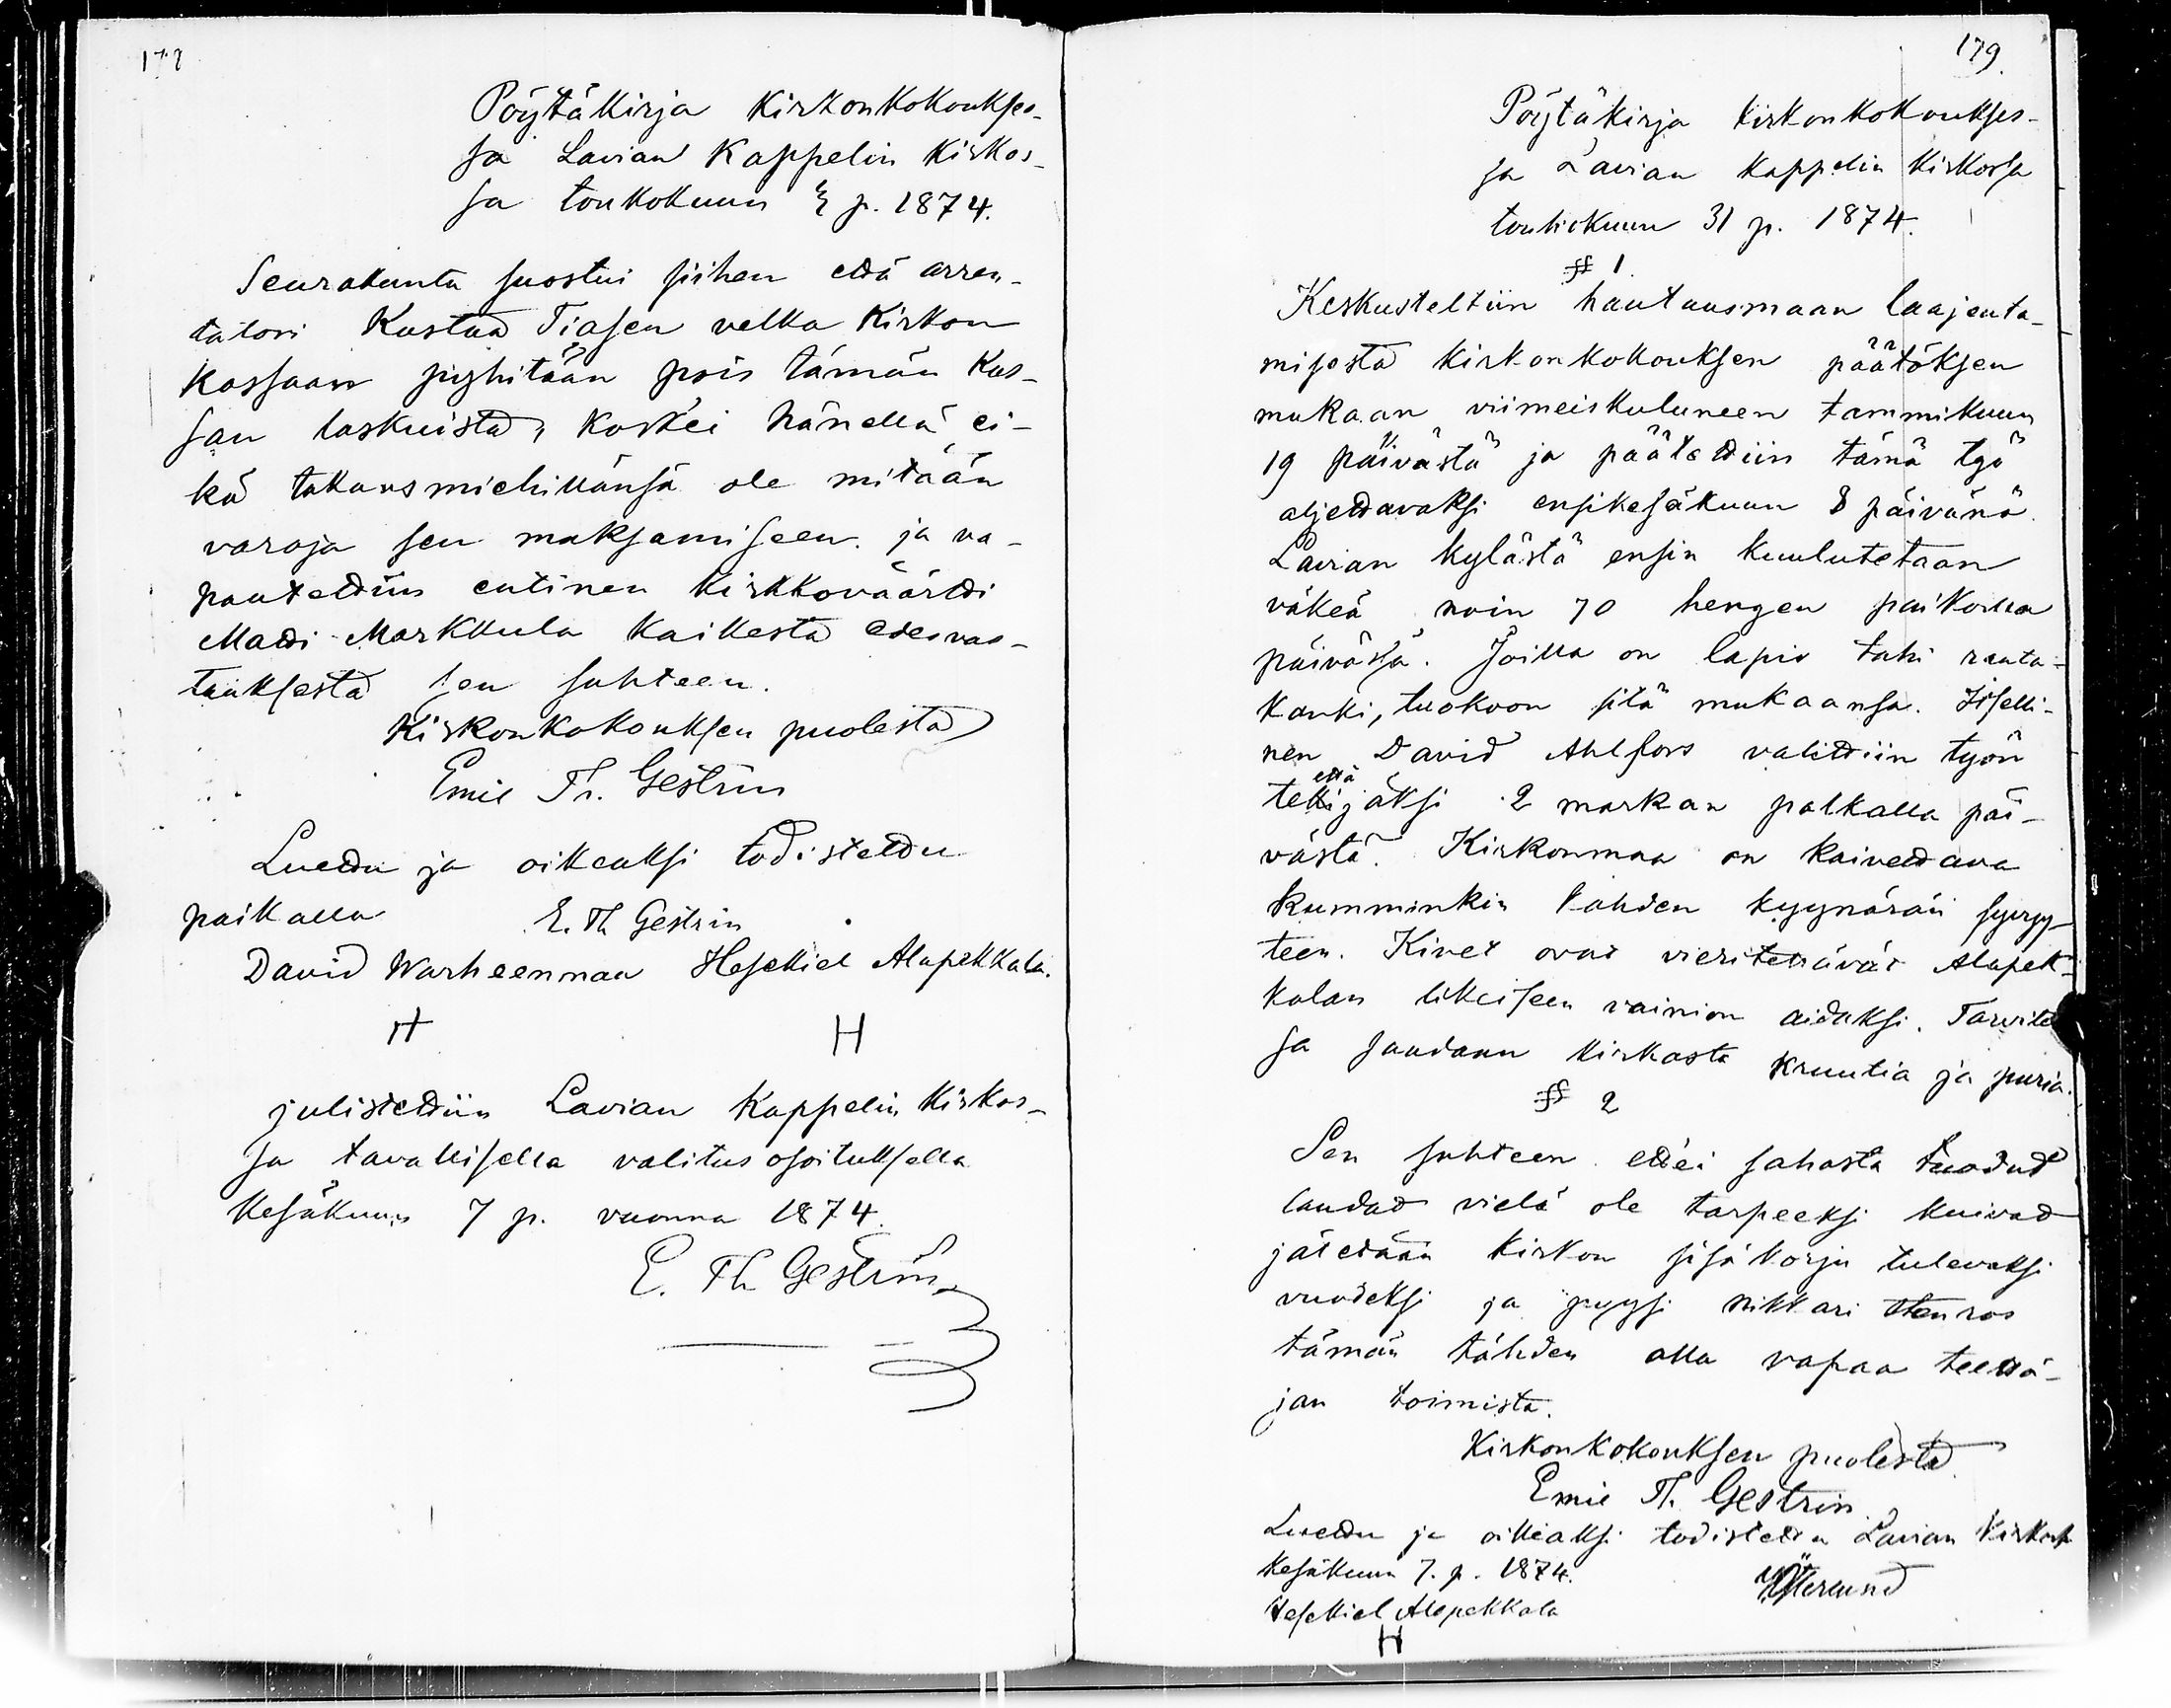 178
Pöytäkirja Kirkonkokoukses-
sa Lavian Kappelin Kirkos-
sa toukokuun p. 1874.
Seurakunta suostui siihen että arren-
tatori Kustaa Tiasen velka Kirkon
Kassaan pyhitään pois tämän Kas-
san laskuista, koskei hänellä ei-
kä takausmiehillänsä ole mitään
varoja sen maksamiseen ja va-
pautettiin entinen kirkkoväärti
Matti Markkula kaikesta edesvas-
tauksesta sen suhteen.
Kirkonkokouksen puolesta
Emil Th. Gestrin
Luettu ja oikeaksi todistettu
paikalla E. Th Gestrin
David Warheenmaa Hesekiel Alapekkala.
H H
julistettiin Lavian Kappelin Kirkos-
sa tavallisella valitus osoituksella
Kesäkuun 7 p. vuonna 1874.
E. Th Gestrin
179.
Pöytäkirja kirkonkokoukses-
sa Lavian kappelin Kirkossa
toukokuun 31 p. 1874.
§ 1.
Keskusteltiin hautausmaan laajenta-
misesta kirkonkokouksen päätöksen
mukaan viimeiskuluneen tammikuun
19 päivästä ja päätettiin tämä työ
aljettavaksi ensikesäkuun 8 päivänä.
Lavian kylästä ensin kuulutetaan
väkeä noin 70 hengen paikoilla
päivässä. Joilla on lapio tahi rauta-
kanki, tuokoon sitä mukaansa. Itselli-
nen David Ahlfors valittiin työn
että
tekijäksi 2 markan palkalla päi-
västä. Kirkonmaa on kaivettava
kumminkin kahden kyynärän syvyy-
teen. Kivet ovat vieritettävät Alapek-
kalan likeiseen vainion aidaksi. Tarvites
sa saadaan kirkosta kruutia ja puria.
§ 2
Sen suhteen ettei sahasta tuodut
laudat vielä ole tarpeeksi kuivad
jätetään kirkon sisäkorju tulevaksi
vuodeksi ja pyysi nikkari Stenros
tämän tähden olla vapaa teettä-
jän toimista.
Kirkonkokouksen puolesta
Emil Th. Gestrin.
Luettu ja oikeaksi todistettu Lavian Kirkossa
Kesäkuun 7. p. 1874. Österlund
Hesekiel Alapekkala
H